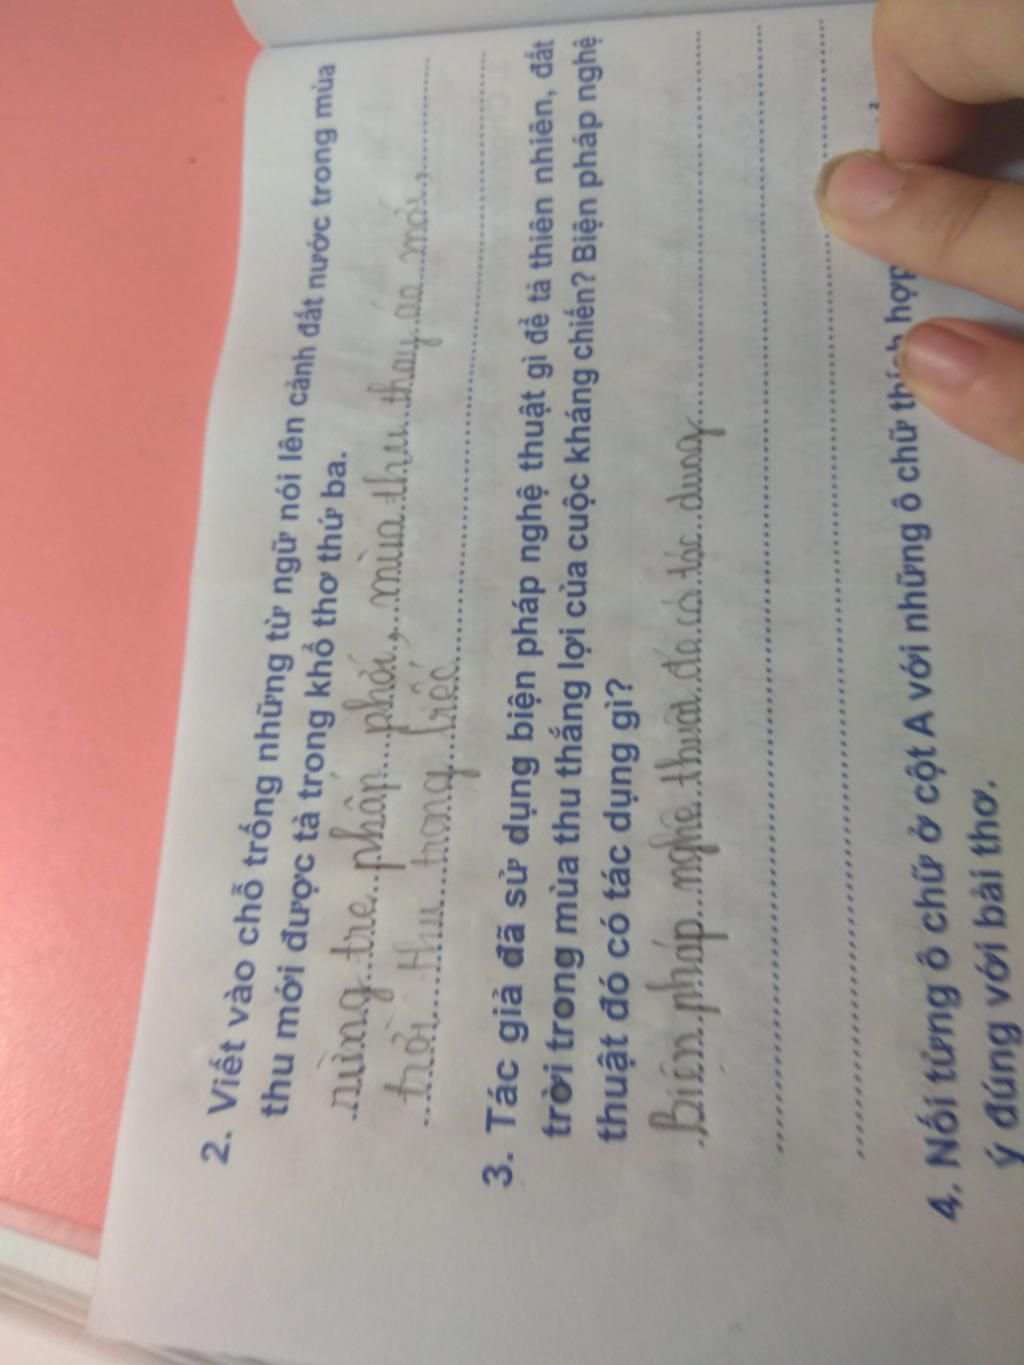 2. Viết vào chỗ trống những từ ngữ nói lên cảnh đất nước trong mùa
thu mới được tả trong khổ thơ thứ ba.
rừng tre phấp phới, mùa thu thay áo mới,
trời thu trong biếc
3. Tác giả đã sử dụng biện pháp nghệ thuật gì để tả thiên nhiên, đất
trời trong mùa thu thắng lợi của cuộc kháng chiến? Biện pháp nghệ
thuật đó có tác dụng gì?
Biện pháp nghệ thuật đó có tác dụng
4. Nối từng ô chữ ở cột A với những ô chữ thích hợp
ý đúng với bài thơ.